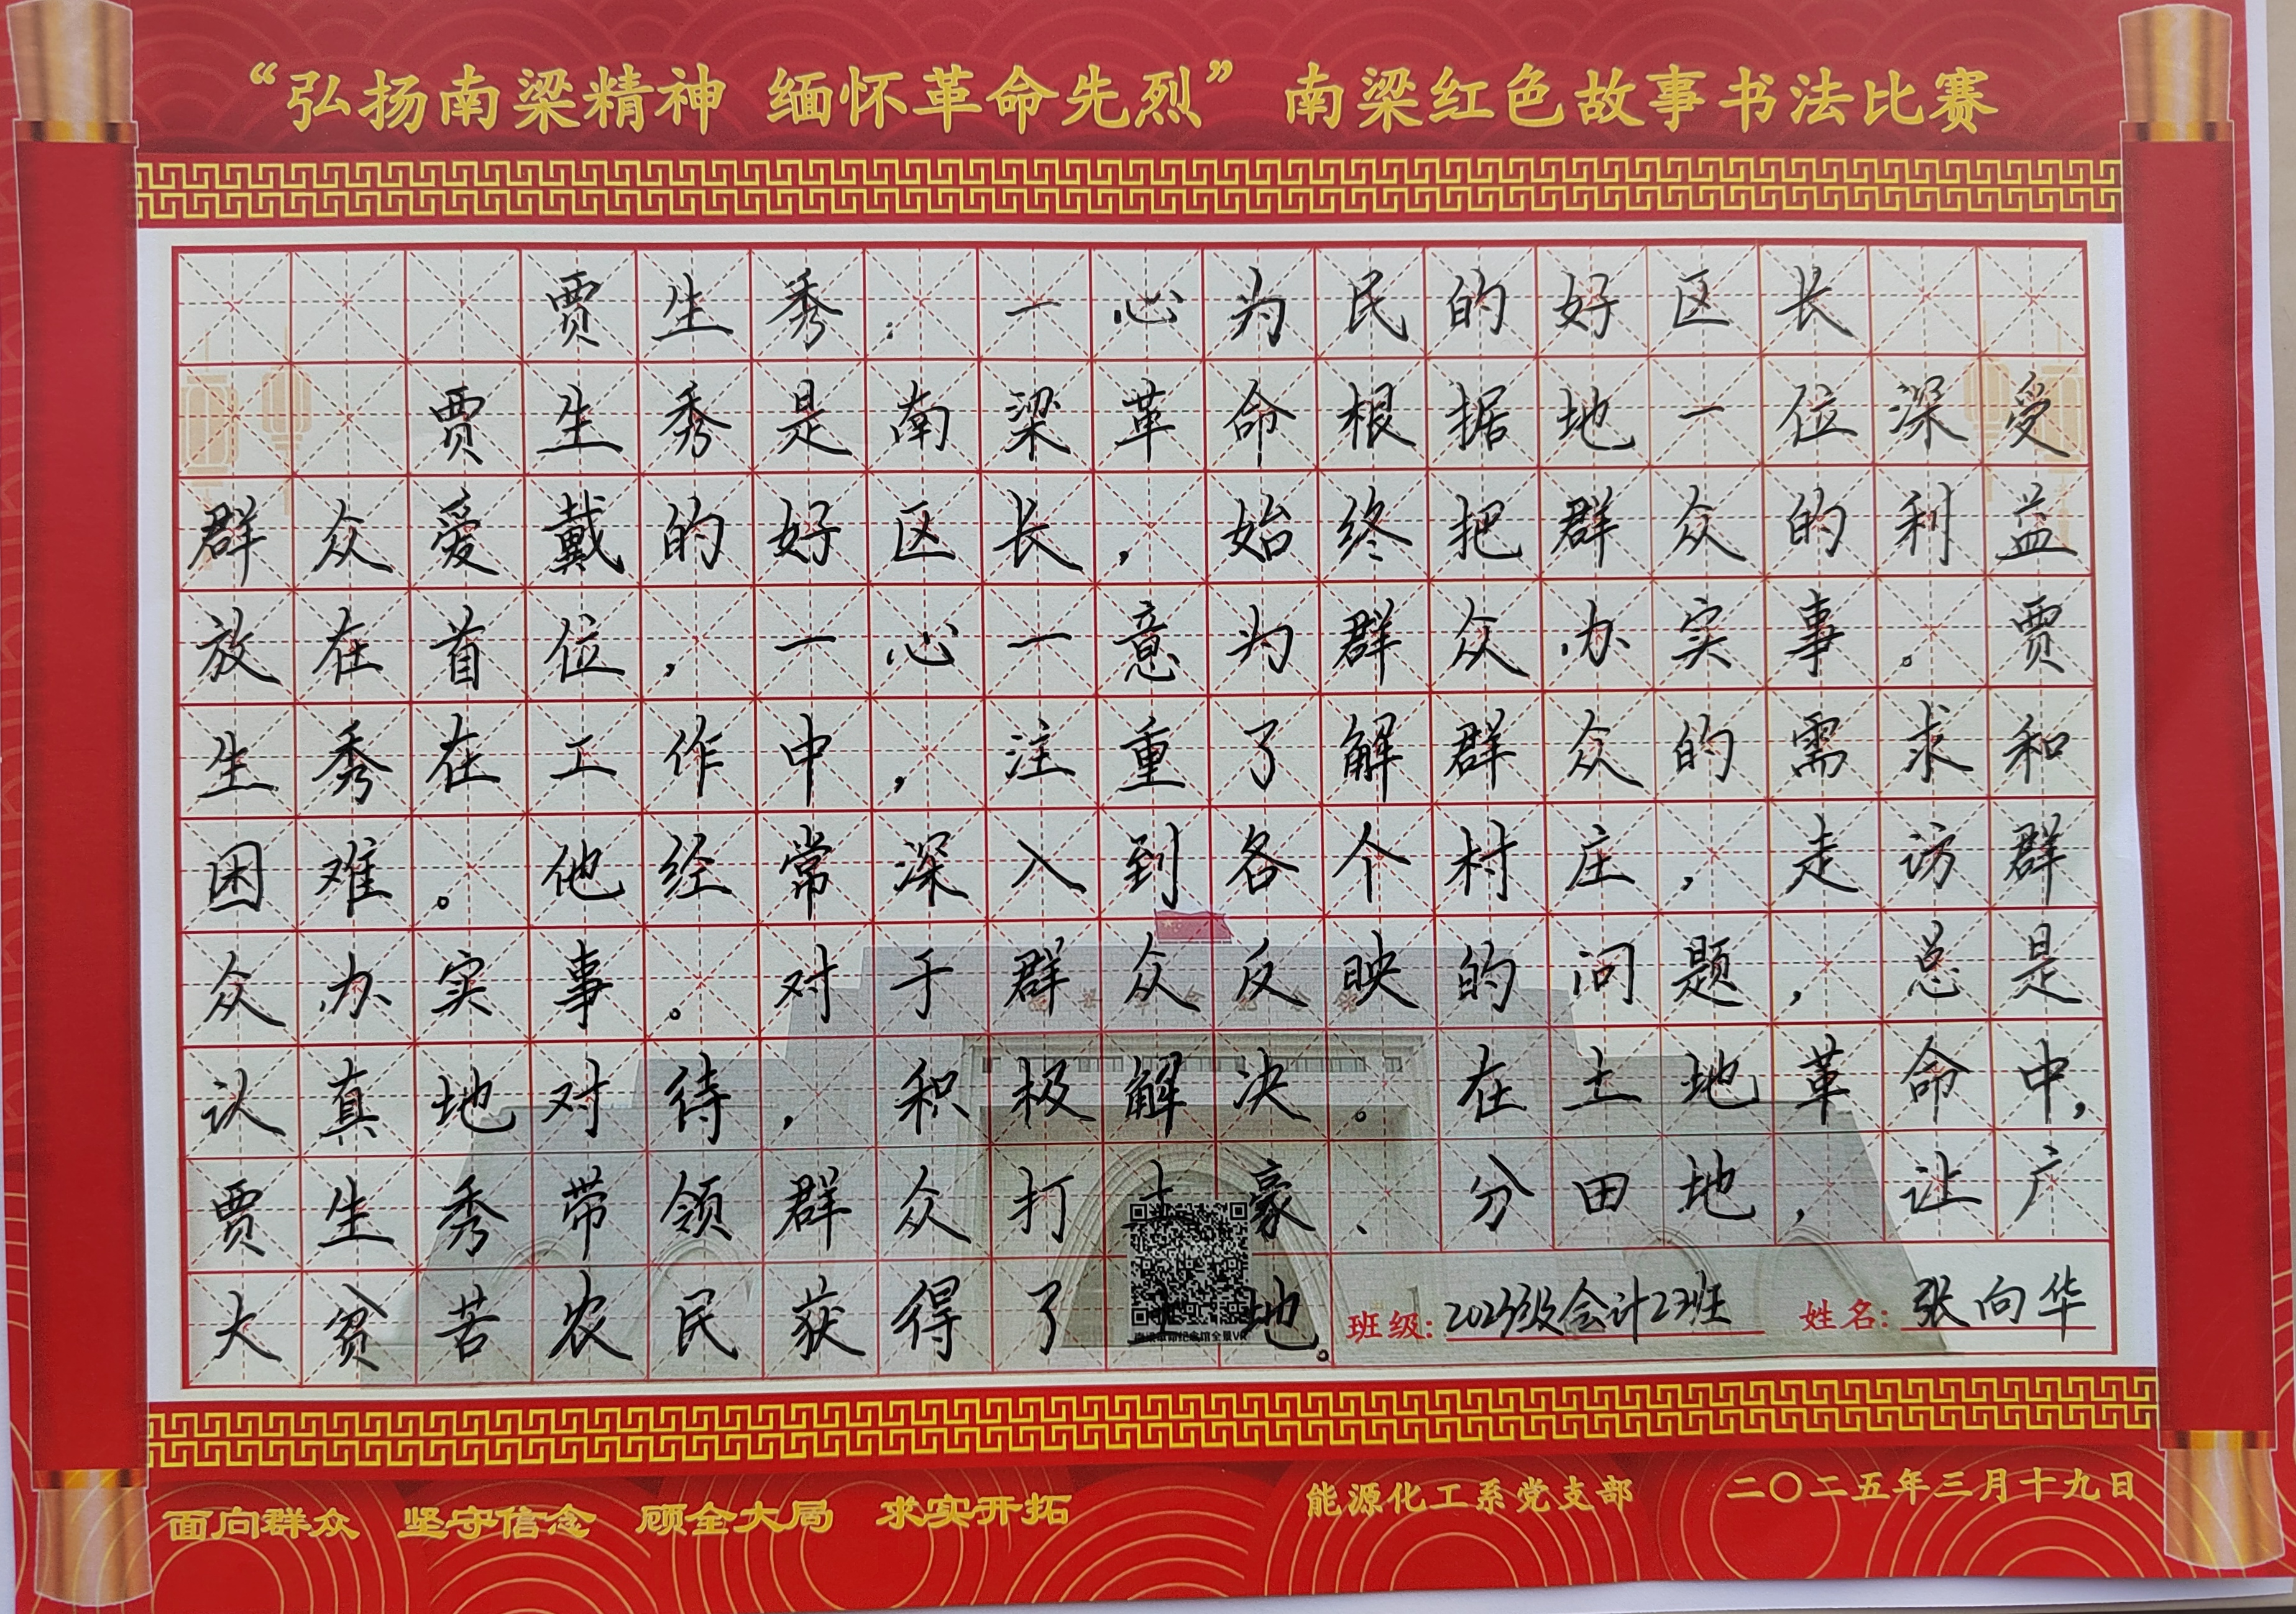 “弘扬南梁精神 缅怀革命先烈” 南梁红色故事书法比赛
贾生秀：一心为民的好区长
贾生秀是南梁革命根据地一位深受
群众爱戴的好区长，始终把群众的利益
放在首位，一心一意为群众办实事。贾
生秀在工作中，注重了解群众的需求和
困难。他经常深入到各个村庄，走访群
众办实事。对于群众反映的问题，总是
认真地对待，积极解决。在土地革命中，
贾生秀带领群众打土豪、分田地，让广
大贫苦农民获得了土地。
班级：2023级会计23班 姓名：张向华
南梁革命纪念馆全景VR
面向群众 坚守信念 顾全大局 求实开拓
能源化工系党支部 二〇二五年三月十九日